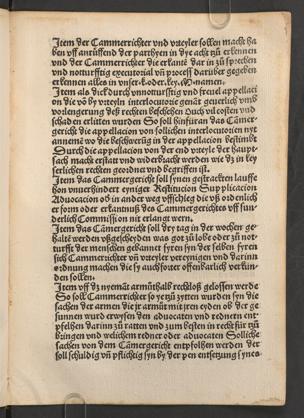 Item der Cammerrichter vnd vrteyler sollen macht ha
ben vff anrüffend der parthyen in dye acht zů erkennen
vnd der Cammerrichter die erkantē dar in zů sprechen
vnd notturfftig executorial vñ process darüber gegeben
erkennen alles in vnser ko. der key. M. namen.
Item als dick durch vnnotturfftig vnd freuel appellaci
on die vō by vrteyln interlocutorie genāt geuerlich vmb
verlengerung deß rechten beschehen Auch vil costen vnd
schaden erlitten wurden So soll hinfuran das Cāmer
gericht die appellacion von sollichen interlocutorien nyt
annemē wo die beschwerūg in der appellation bestimbt
Durch die appellacion von der end vrteyle der haupt
sach macht erstatt vnd widerbracht werden wie dz in key
serlichen rechten geordnet vnd begriffen ist.
Item das Cammergericht soll synen gestracken lauffe
hon vnuerhindert eyniger Restitucion Supplicacion
Aduocacion ob in ander weg vffschieg die vß ordenlich
er form oder erkantnuß des Cammergerichts vff sun
derlich Commission nit erlangt wern.
Item das Cāmergericht soll dry tag in der wochen ge
halte werden vßgescheyden was got zů lobe oder zů not
turfft der menschen gebannet fyren syn der selben fyren
sich Cammerrichter vñ vrteyler vereynigen vnd darinn
ordnung machen die sy auch fouter offenbarlich verkün
den sollen.
Item vff dz nyemāt armůthalb rechtloß gelossen werde
So soll Cammerrichter so ye zů zytten wurden syn die
sachen der armen die ir armůt mit iren eyden ob der ge
sunnen wurd erwysen den aduocaten vnd rednern ent
pfelhen darinn zů ratten vnd zum besten in recht für zů
bringen vnd welichem redner oder aduocaten Solliche
sachen von dem Cāmergericht entpfolhen werden der
soll schuldig vñ pflichtig syn by der pen entsetzung synes